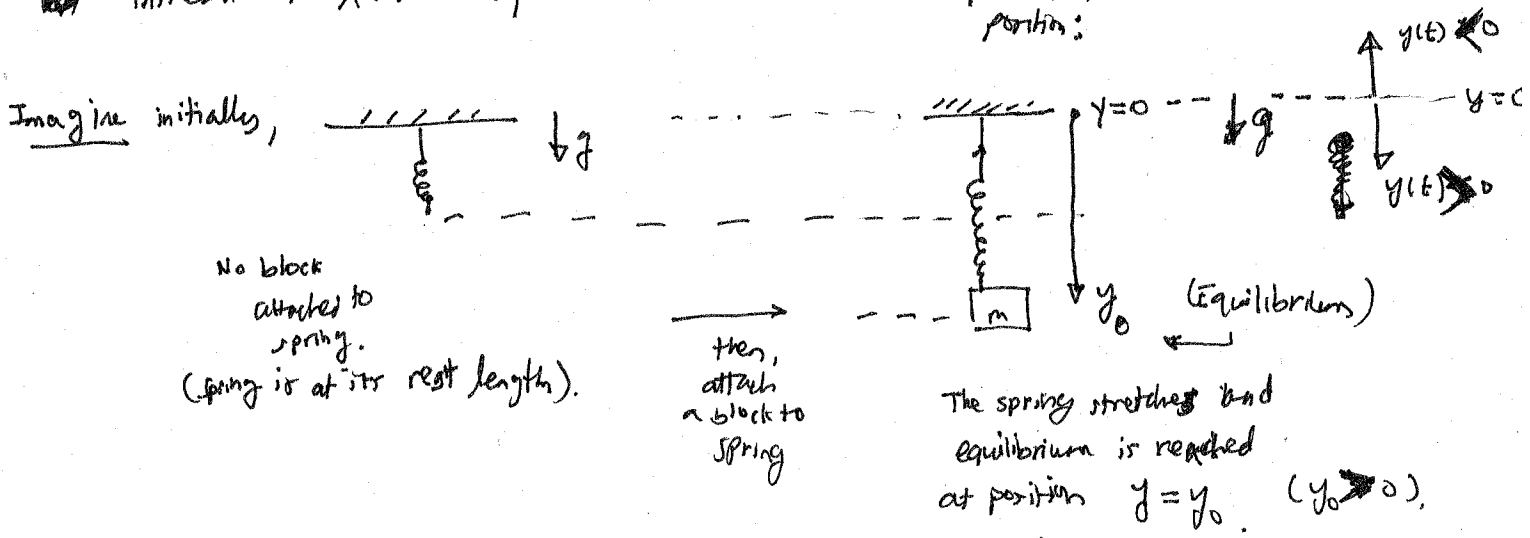 position:
y(t) < 0
Imagine initially,
g
y=0
g
y=0
y(t) > 0
No block
attached to
spring.
(spring is at its rest length).
then,
attach
a block to
spring
m
y₀
(Equilibrium)
The spring stretches and
equilibrium is reached
at position y = y₀. (y₀ > 0).